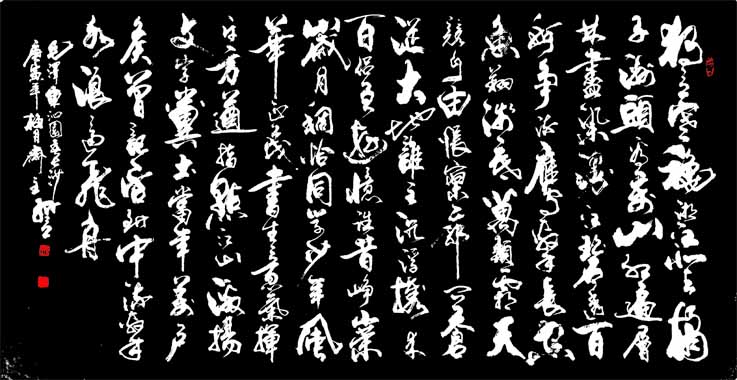 獨立寒穐湘江北去橘
子洲頭看萬山红遍層
林盡染漫江碧透百
舸争流鷹擊長空
魚翔淺底萬類霜天
競自由悵寥廓问蒼
茫大地誰主沉浮攜来
百侣曾遊憶往昔崢嶸
歲月稠恰同学少年風
華正茂書生意氣揮
斥方遒指點江山激揚
文字糞土當年萬户
侯曾記否到中流擊
水浪遏飛舟
毛澤東沁園春長沙
年梅月齋主